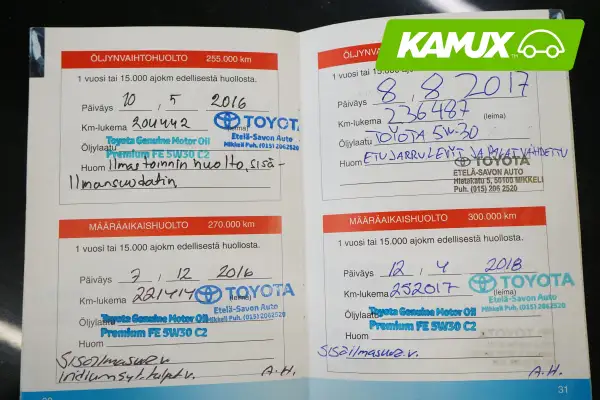 KAMUX
ÖLJYNVAIHTOHUOLTO 255.000 km
1 vuosi tai 15.000 ajokm edellisestä huollosta.
Päiväys 10 / 5 2016
Km-lukema 204442 (leima)
TOYOTA
Etelä-Savon Auto
Mikkeli Puh. (015) 2062520
Öljylaatu Toyota Genuine Motor Oil
Premium FE 5W30 C2
Huom Ilmastoinnin huolto, sisä-
Ilmansuodatin
MÄÄRÄAIKAISHUOLTO 270.000 km
1 vuosi tai 15.000 ajokm edellisestä huollosta.
Päiväys 7 / 12 2016
Km-lukema 221414 (leima)
TOYOTA
Etelä-Savon Auto
Mikkeli Puh. (015) 2062520
Öljylaatu Toyota Genuine Motor Oil
Premium FE 5W30 C2
Huom
Sisäilmasuod.v.
Iridiumsyt.tulpat v. A.H.
30
ÖLJYNVA
1 vuosi tai 15.0
Päiväys 8 / 8 2017
Km-lukema 236487 (leima)
Öljylaatu TOYOTA 5W-30
Huom ETUJARRULEVYT JA PALAT VAIHDETTU
TOYOTA
ETELÄ-SAVON AUTO
Hietakatu 5, 50100 MIKKELI
Puh. (015) 206 2520
MÄÄRÄAIKAISHUOLTO 300.000 km
1 vuosi tai 15.000 ajokm edellisestä huollosta.
Päiväys 12 / 4 2018
Km-lukema 252017 (leima)
TOYOTA
Etelä-Savon Auto
Mikkeli Puh. (015) 2062520
Öljylaatu Toyota Genuine Motor Oil
Premium FE 5W30 C2
Huom
Sisäilmasuo.v.
A.H.
31